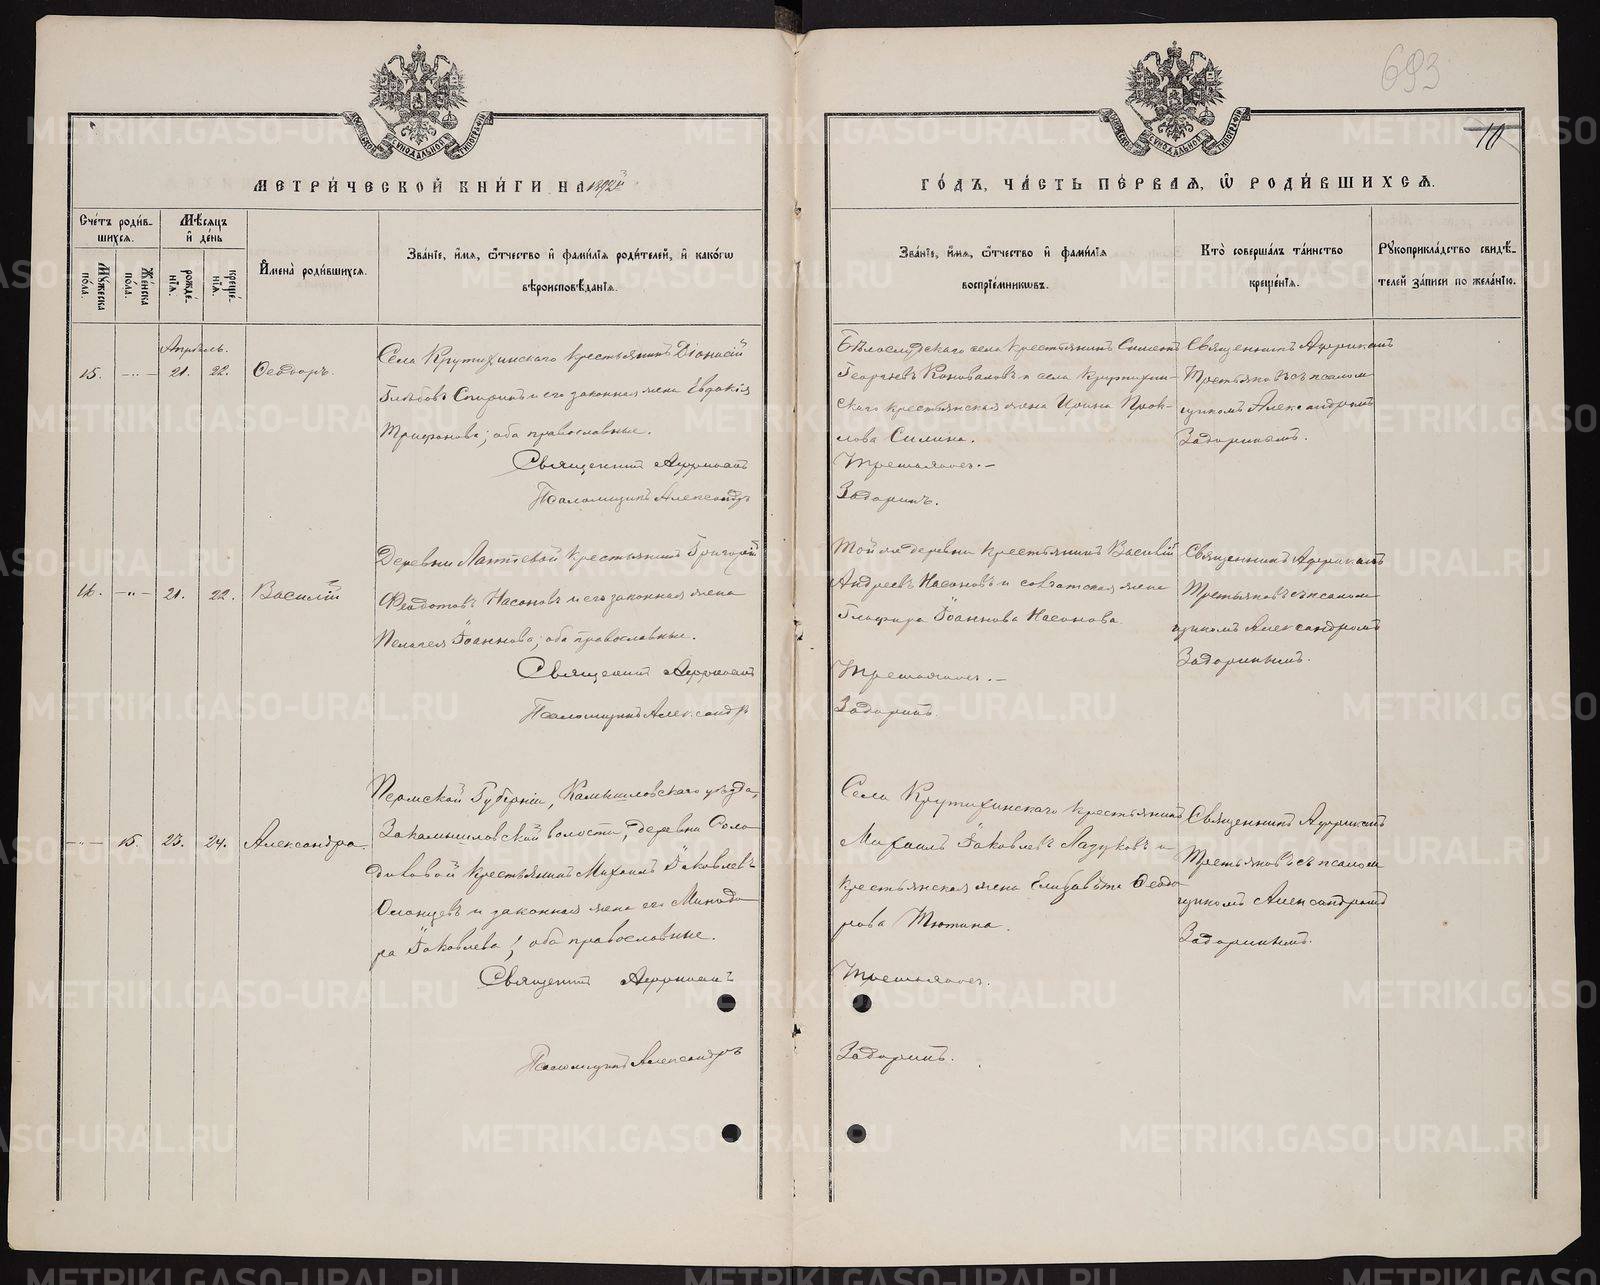 693
10
МЕТРИ́ЧЕСКОЙ КНИ́ГИ НА 1892й
ГО́ДЪ, ЧА́СТЬ ПЕ́РВАЯ, Ѡ РОДИ́ВШИХСЯ.
Сче́тъ роди́в-
шихся.
Му́жеска по́ла.
Же́нска по́ла.
Мѣ́сяцъ
и де́нь
рожде́-
нїя.
креще́-
нїя.
Имена̀ роди́вшихся.
Зва́нїе, и́мя, ѻ́тчество и фами́лїя роди́телей, и како́гѡ
вѣроисповѣ́данїя.
Зва́нїе, и́мя, ѻ́тчество и фами́лїя
воспрїе́мникѡвъ.
Кто̀ соверша́лъ та́инство
креще́нїя.
Рꙋкоприкла́дство свидѣ́-
телей за́писи по жела́нїю.
Апрѣль.
15. —„— 21. 22. Ѳеодоръ.
Села Крутихинскаго крестьянинъ Діонисій
Глѣбовъ Спиринъ и его законная жена Евдокія
Трифонова; оба православные.
Священникъ Африканъ
Псаломщикъ Александръ
Бѣлослудскаго села крестьянинъ Симеонъ
Георгіевъ Коноваловъ и села Крутихин-
скаго крестьянская жена Ирина Прок-
лова Силина.
Третьяковъ.—
Задоринъ.
Священникъ Африканъ
Третьяковъ съ псалом
щикомъ Александромъ
Задоринымъ.
16. —„— 21. 22. Василій
Деревни Лаптевой крестьянинъ Григорій
Ѳеодотовъ Насоновъ и его законная жена
Пелагея Іоаннова; оба православные.
Священникъ Африканъ
Псаломщикъ Александръ
Той же деревни крестьянинъ Василій
Андреевъ Насоновъ и солдатская жена
Глафира Іоаннова Насонова
Третьяковъ.—
Задоринъ.
Священникъ Африканъ
Третьяковъ съ псалом
щикомъ Александромъ
Задоринымъ.
—„— 15. 23. 24. Александра.
Пермской Губерніи, Камышловскаго уѣзда,
Закамышловской волости, деревни Соло
диловой крестьянинъ Михаилъ Іаковлевъ
и законная жена его Минодо
ра Іаковлева; оба православные.
Священникъ Африканъ
Псаломщикъ Александръ
Села Крутихинскаго крестьянинъ
Михаилъ Іаковлевъ Ладуковъ и
крестьянская жена Елизавета Ѳеодо
рова Тютина.
Третьяковъ.
Задоринъ.
Священникъ Африканъ
Третьяковъ съ псалом
щикомъ Александромъ
Задоринымъ.
METRIKI.GASO-URAL.RU